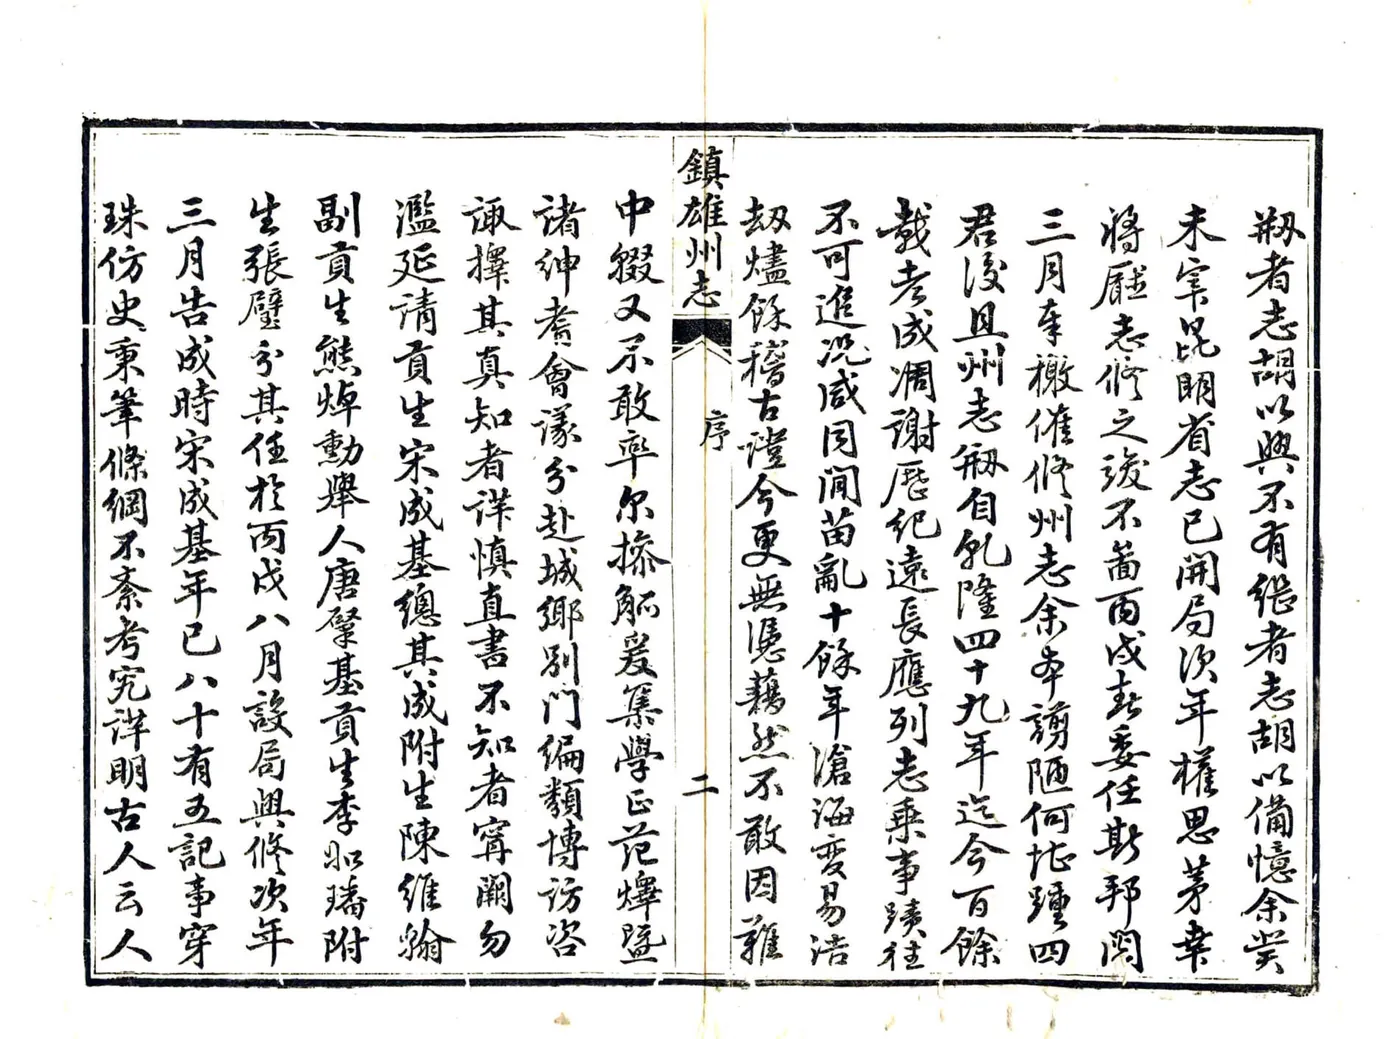 剏者志胡以興不有繼者志胡以備憶余癸
未宰昆明省志已開局次年權思茅幸
將廳志修之竣不啬丙戌春委任斯邦閱
三月奉檄催修州志余本謭陋何堪踵四
君後且州志剏自乹隆四十九年迄今百餘
載老成凋謝歷紀遠長應列志乘事蹟往
不可追况咸同間苗亂十餘年滄海变易浩
刼燼餘稽古證今更無憑藉然不敢因難
鎮雄州志
序
二
中輟又不敢率尔摻觚爰集學正范煇曁
諸紳耆會議分赴城鄉别門編類博访咨
諏擇其真知者详慎直書不知者寗闕勿
濫延請貢生宋成基總其成附生陳維翰
副貢生熊焯勳舉人唐肇基貢生李昭璠附
生張璧分其任於丙戌八月設局興修次年
三月告成時宋成基年已八十有五記事穿
珠仿史秉筆條綱不紊考究详明古人云人